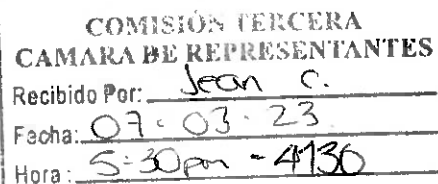 COMISIÓN TERCERA
CAMARA DE REPRESENTANTES
Recibido Por: Jean C.
Fecha: 07 - 03 - 23
Hora: 5:30pm - 4130